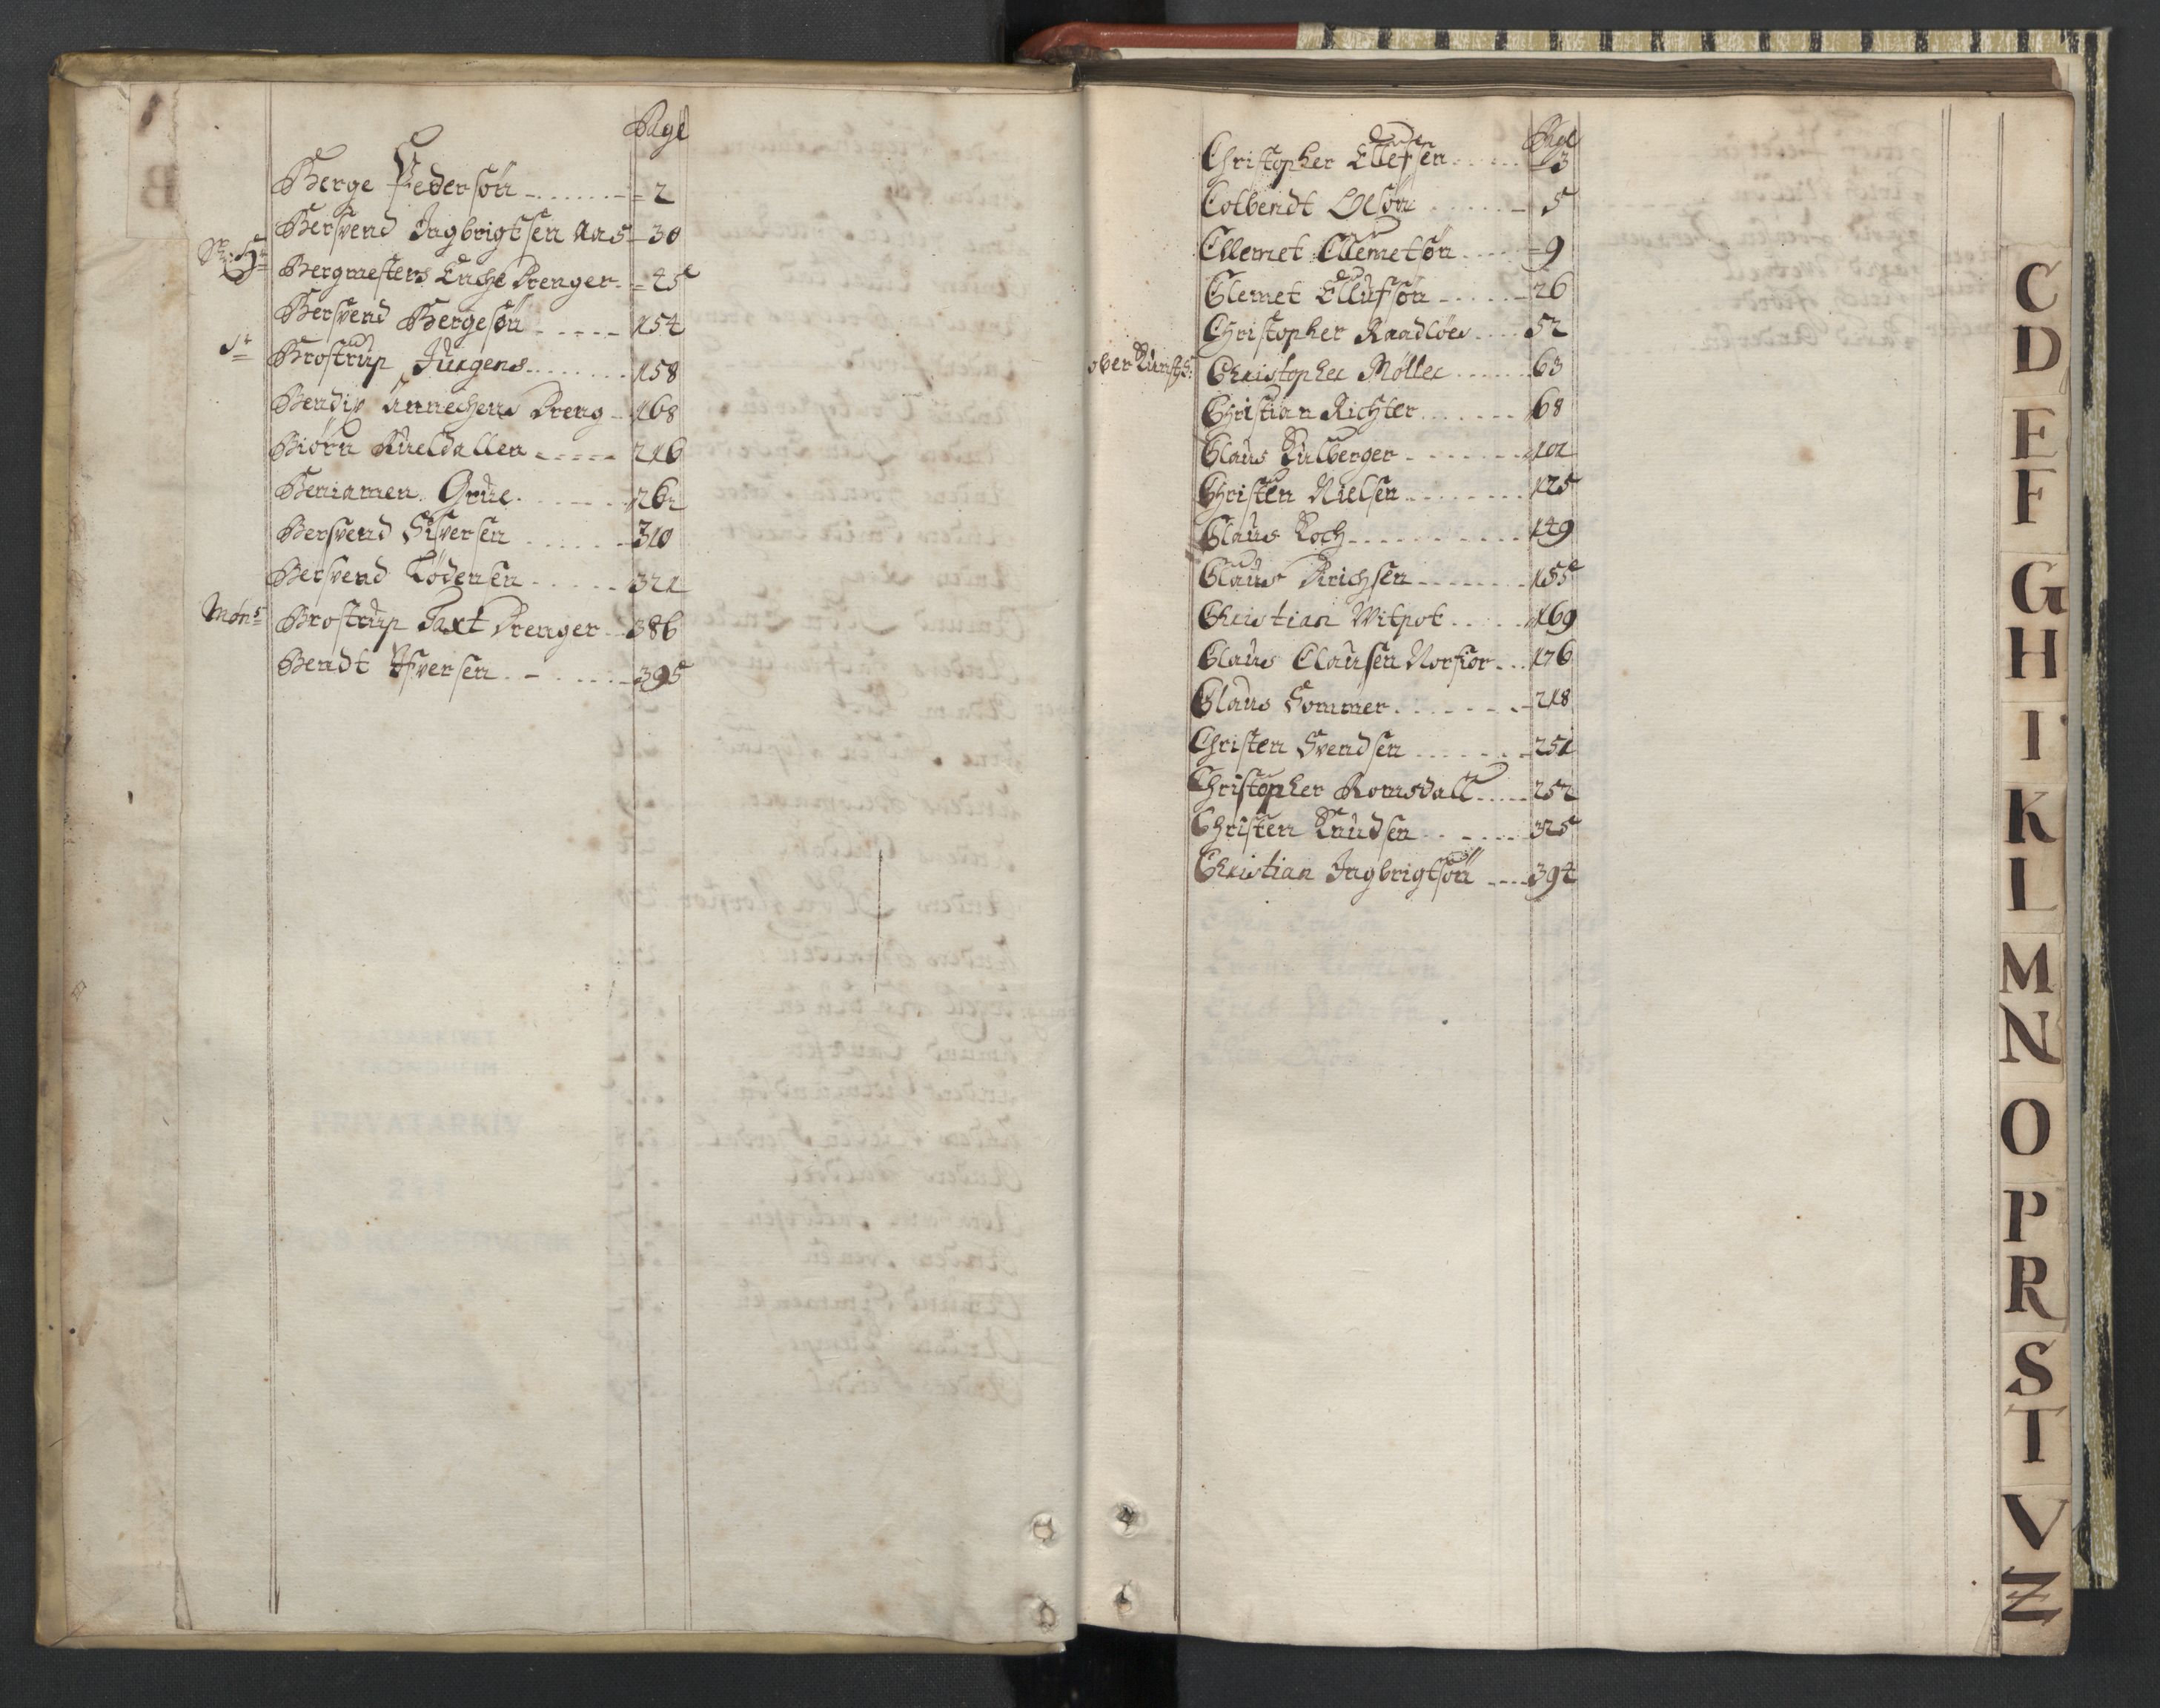 Page
Berge Pedersön 2
Bersvend Ingbrigtsen Aas 30
Bergmesters Enche Drenger 45
Bersvend Bergesön 154
Sr Brostrup Jurgens 158
Bendix Annechens Dreng 168
Biörn Kueldallen 216
Beniamen Grue 262
Bersvend Sifversen 310
Bersvend Tödensen 321
Monsr Brostrup Taxt Drenger 386
Bendt Ifversen 395
Page
Christopher Ellefsen 3
Colbendt Olsön 5
Clemet Clemetsön 9
Clemet Ellufsön 26
Christopher Raadlöes 52
ober Kunstr: Christopher Möller 63
Christian Richter 68
Claus Kulberger 101
Christen Nielsen 125
Claus Koch 149
Claus Dirichsen 155
Christian Witpot 169
Claus Clausen Norfior 176
Claus Sommer 218
Christen Svendsen 251
Christopher Romsdall 252
Christen Knudsen 325
Christian Ingbrigtsön 394
B
C
D
E
F
G
H
I
K
L
M
N
O
P
R
S
T
V
Z